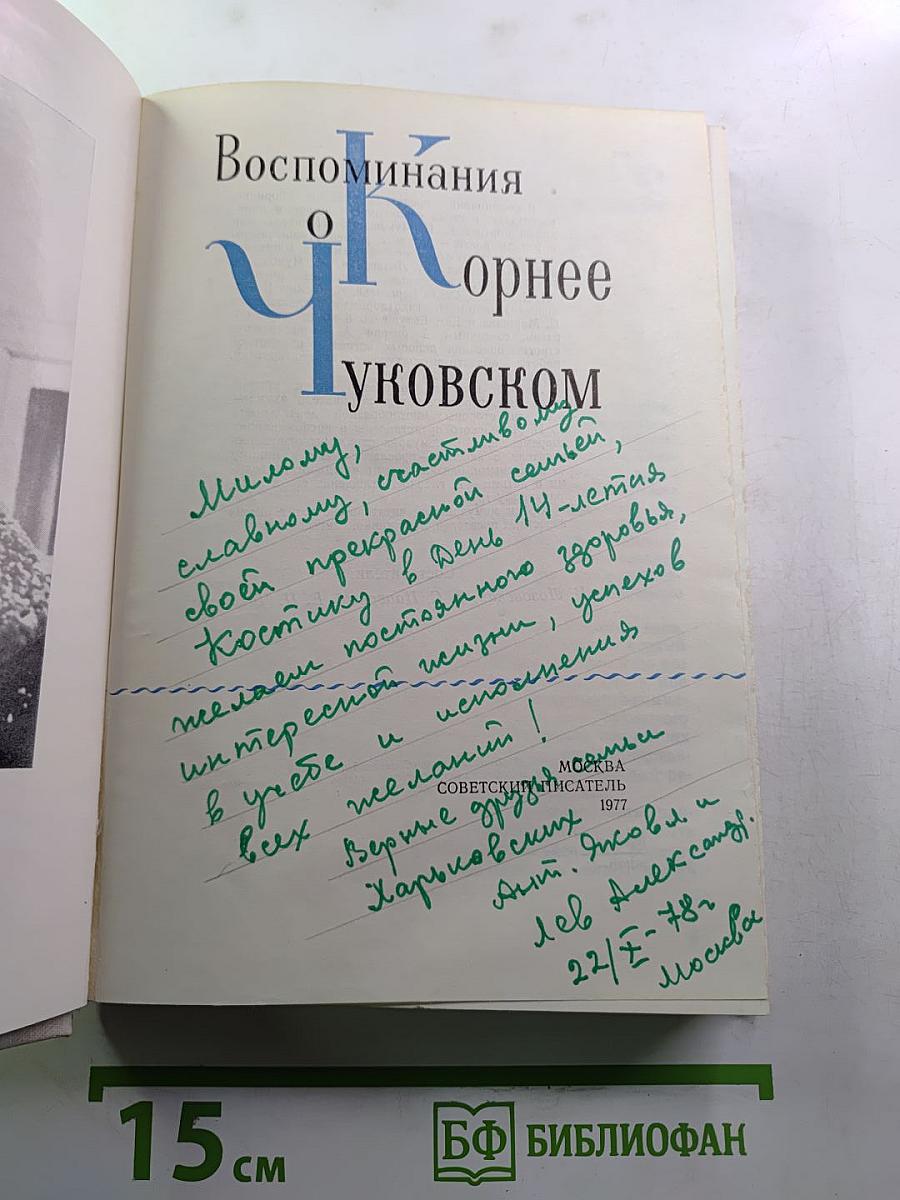 Воспоминания
о
Корнее
Чуковском
Милому,
славному, счастливому
своей прекрасной семьёй,
Костику в День 14-летия
желаем постоянного здоровья,
интересной жизни, успехов
в учебе и исполнения
всех желаний!
МОСКВА
СОВЕТСКИЙ ПИСАТЕЛЬ
1977
Верные друзья семьи
Харьковских
Ант. Яковл. и
Лев Александр.
22/X-78г
Москва
15 см
БФ БИБЛИОФАН